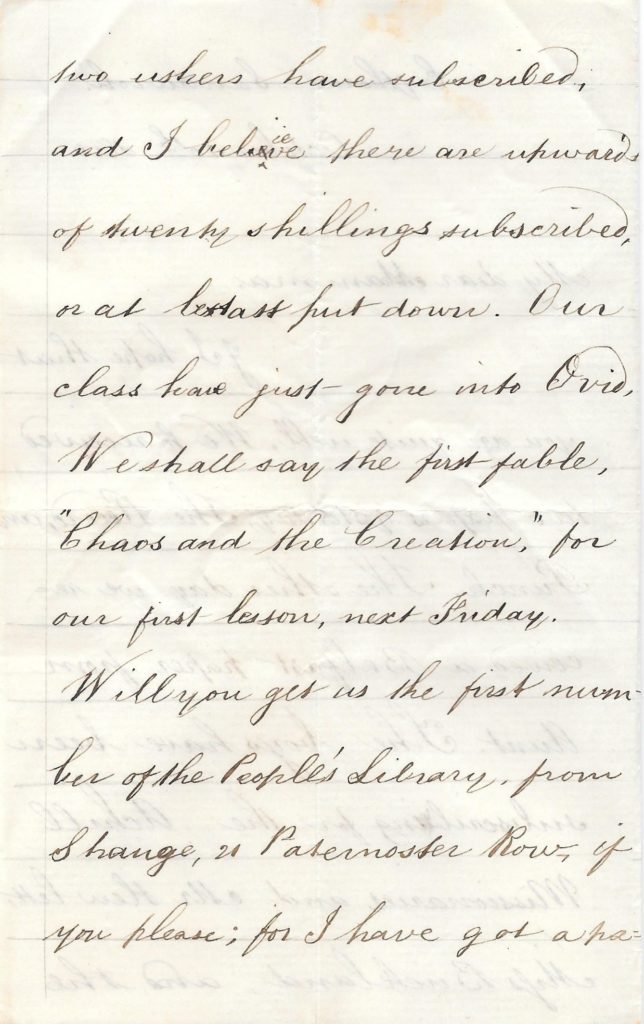 two ushers have subscribed,
and I believe there are upwards
of twenty shillings subscribed,
or at least put down. Our
class have just gone into Ovid,
We shall say the first fable,
"Chaos and the Creation," for
our first lesson, next Friday.
Will you get us the first num-
ber of the People's Library, from
Strange, 21 Paternoster Row, if
you please; for I have got a pa=